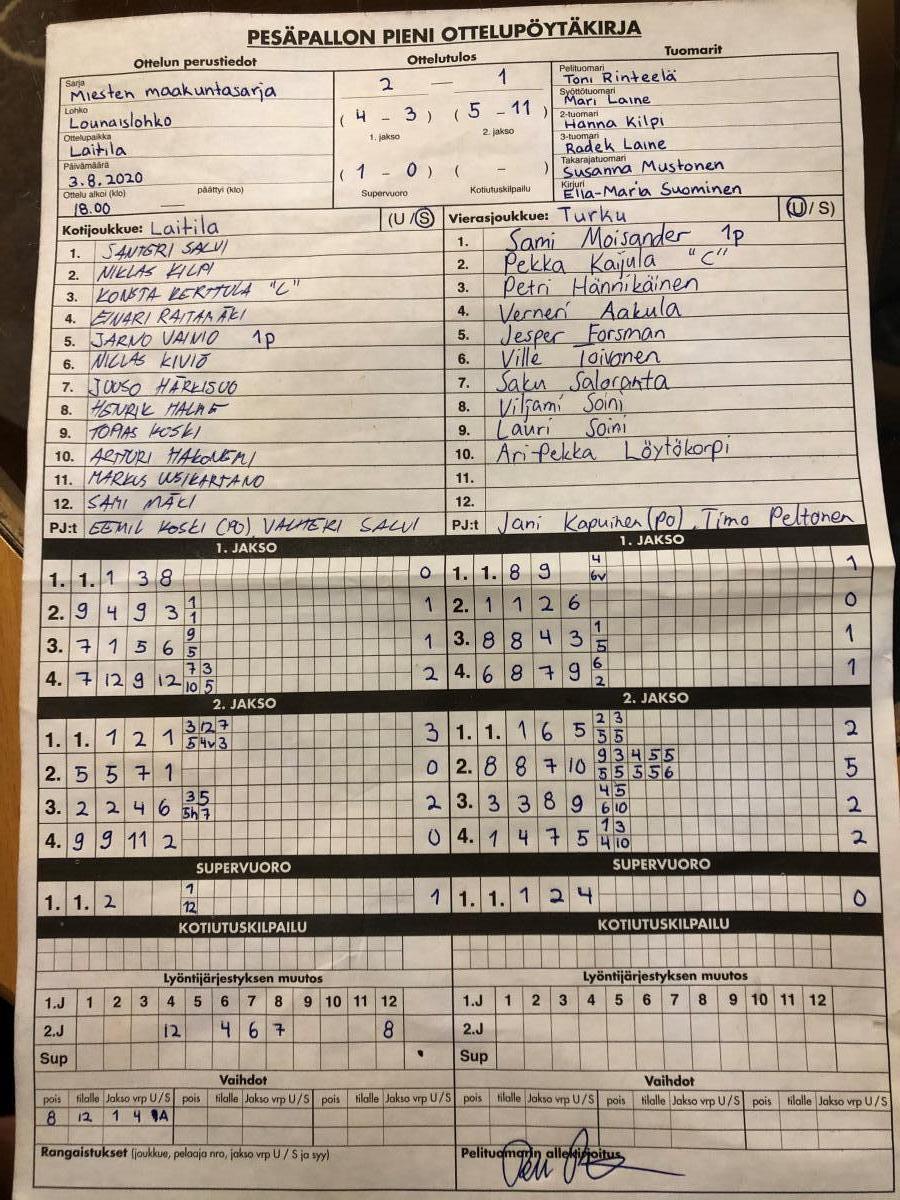 PESÄPALLON PIENI OTTELUPÖYTÄKIRJA
Ottelun perustiedot
Sarja
Miesten maakuntasarja
Lohko
Lounaislohko
Ottelupaikka
Laitila
Päivämäärä
3.8.2020
Ottelu alkoi (klo) päättyi (klo)
18.00 —
Ottelutulos
2 — 1
( 4 - 3 ) ( 5 - 11 )
1. jakso 2. jakso
( 1 - 0 ) ( - )
Supervuoro Kotiutuskilpailu
Tuomarit
Pelituomari
Toni Rinteelä
Syöttötuomari
Mari Laine
2-tuomari
Hanna Kilpi
3-tuomari
Radek Laine
Takarajatuomari
Susanna Mustonen
Kirjuri
Ella-Maria Suominen
Kotijoukkue: Laitila (U / S)
1. SANTERI SALVI
2. NIKLAS KILPI
3. KONSTA KERTTULA "C"
4. EINARI RAITAMÄKI
5. JARNO VAINIO 1p
6. NICLAS KIVIÖ
7. JUUSO HÄRKISUO
8. HENRIK
9. TOMAS KOSKI
10. ARTTURI
11. MARKUS
12. SAMI MÄKI
PJ:t EEMIL KOSKI (PO), VALTTERI SALVI
Vierasjoukkue: Turku (U / S)
1. Sami Moisander 1p
2. Pekka Kaijula "C"
3. Petri Hännikäinen
4. Verneri Aakula
5. Jesper Forsman
6. Ville Toivonen
7. Saku Saloranta
8. Viljami Soini
9. Lauri Soini
10. Ari-Pekka Löytökorpi
11.
12.
PJ:t Jani Kapuinen (PO), Timo Peltonen
1. JAKSO
1. 1. 1 3 8 0
2. 9 4 9 3 1 1
1
3. 7 1 5 6 9 1
5
4. 7 12 9 12 7 3 2
10 5
1. JAKSO
1. 1. 8 9 4 1
6v
2. 1 1 2 6 0
3. 8 8 4 3 1 1
5
4. 6 8 7 9 6 1
2
2. JAKSO
1. 1. 1 2 1 3 12 7 3
5 4v 3
2. 5 5 7 1 0
3. 2 2 4 6 3 5 2
5h 7
4. 9 9 11 2 0
2. JAKSO
1. 1. 1 6 5 2 3 2
5 5
2. 8 8 7 10 9 3 4 5 5 5
5 5 5 5 6
3. 3 3 8 9 4 5 2
6 10
4. 1 4 7 5 1 3 2
4 10
SUPERVUORO
1. 1. 2 1 1
12
SUPERVUORO
1. 1. 1 2 4 0
KOTIUTUSKILPAILU
KOTIUTUSKILPAILU
Lyöntijärjestyksen muutos
1.J 1 2 3 4 5 6 7 8 9 10 11 12
2.J 12 4 6 7 8
Sup
Lyöntijärjestyksen muutos
1.J 1 2 3 4 5 6 7 8 9 10 11 12
2.J
Sup
Vaihdot
pois tilalle Jakso vrp U / S pois tilalle Jakso vrp U / S pois tilalle Jakso vrp U / S
8 12 1 4 1A
Vaihdot
pois tilalle Jakso vrp U / S pois tilalle Jakso vrp U / S pois tilalle Jakso vrp U / S
Rangaistukset (joukkue, pelaaja nro, jakso vrp U / S ja syy)
Pelituomarin allekirjoitus